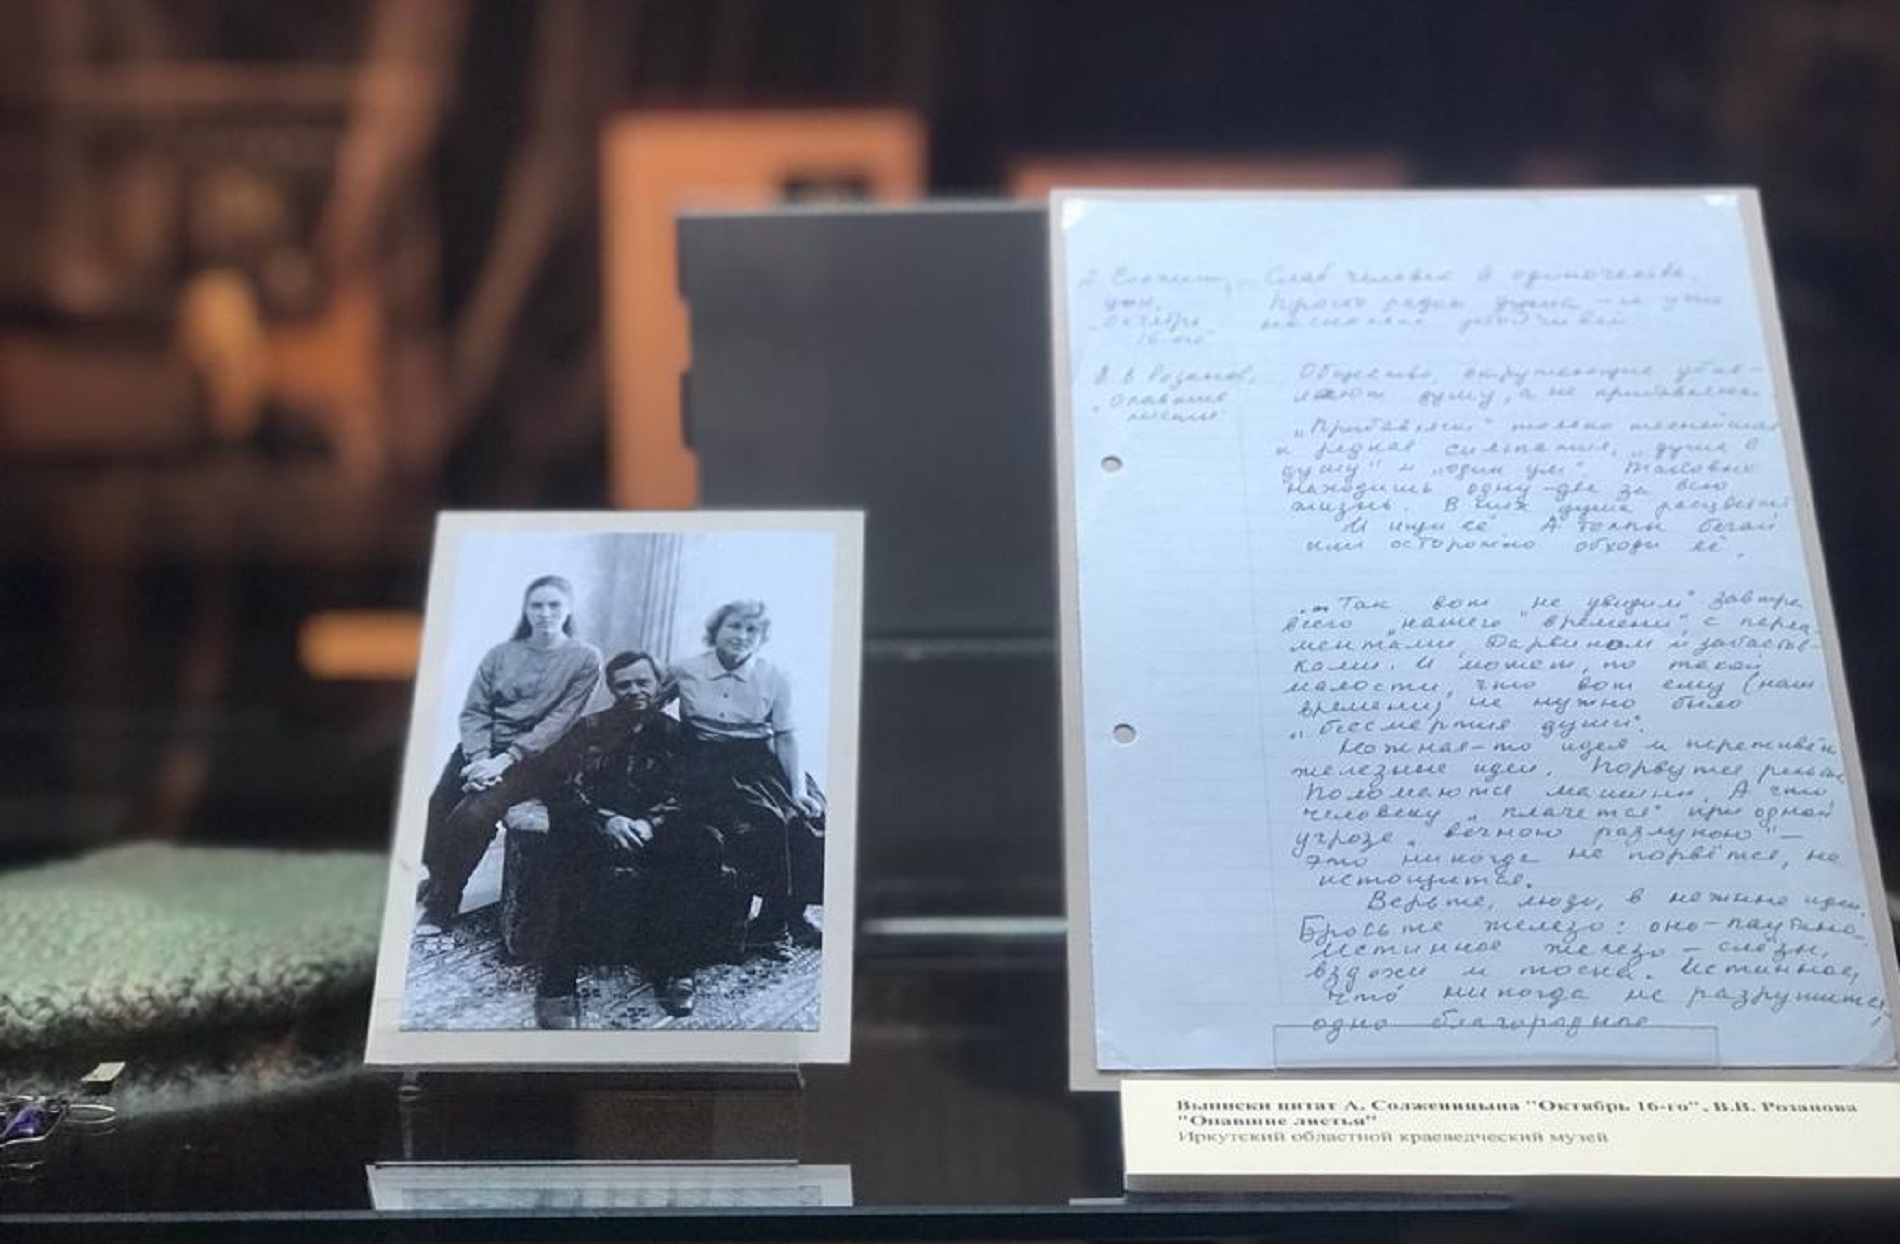 А. Солжени-
цын.
„Октябрь
16-ого"
Слаб человек в одиночестве.
Просто рядом душа – и уже
насколько устойчивей
В.В. Розанов,
„Опавшие
листья"
Общество, окружающие убав-
ляют душу, а не прибавляют.
„Прибавляет" только теснейшая
и редкая симпатия, „душа в
душу" и „один ум". Таковых
находишь одну-две за всю
жизнь. В них душа расцветает
И ищи её. А толпы бегай
или осторожно обходи её.
„... Так вот „не увидим" завтра
всего „нашего времени", с парла-
ментами, Дарвином и забастов-
ками. И может, по такой
малости, что вот ему (наш.
времени) не нужно было
„бессмертия души".
Нежная-то идея и переживёт
железные идеи. Порвутся рельсы.
Поломаются машины. А что
человеку „плачется" при одной
угрозе „вечною разлукою" –
это никогда не порвётся, не
истощится.
Верьте, люди, в нежные идеи.
Бросьте железо: оно – паутина.
Истинное железо – слёзы,
вздохи и тоска. Истинное,
что никогда не разрушится,
одно благородное
Выписки цитат А. Солженицына "Октябрь 16-го", В.В. Розанова
"Опавшие листья"
Иркутский областной краеведческий музей